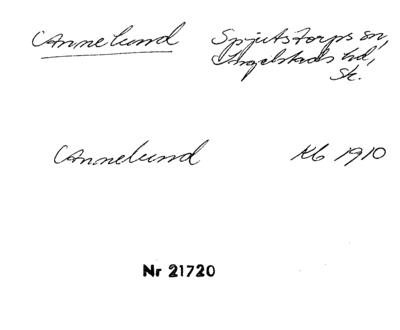 Annelund Spjutstorps sn,
Ingelstads hd,
Sk.
Annelund Kb 1910
Nr 21720